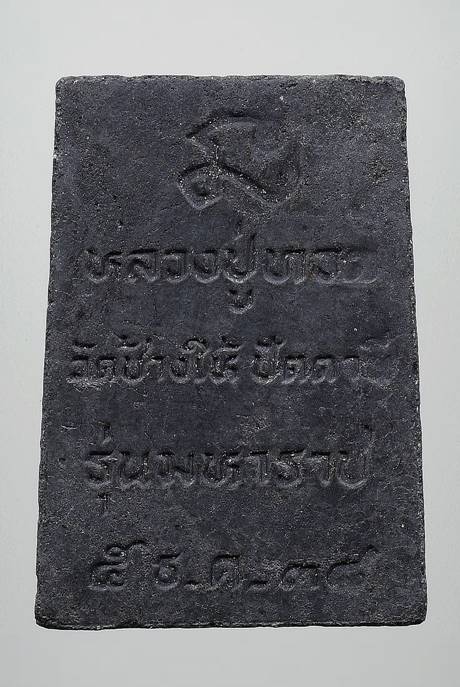 หลวงปู่ทวด
วัดช้างให้ ปัตตานี
รุ่นมหาราช
๕ ธ.ค. ๓๘